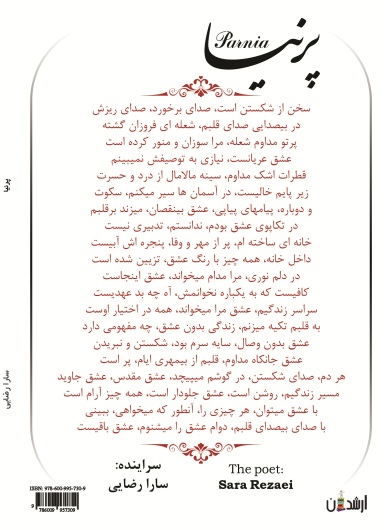 پرنیا
Parnia
سخن از شکستن است، صدای برخورد، صدای ریزش
در بیصدایی صدای قلبم، شعله ای فروزان گشته
پرتو مداوم شعله، مرا سوزان و منور کرده است
عشق عریانست، نیازی به توصیفش نمیبینم
قطرات اشک مداوم، سینه مالامال از درد و حسرت
زیر پایم خالیست، در آسمان ها سیر میکنم، سکوت
و دوباره، پیامهای پیاپی، عشق بینقصان، میزند برقلبم
در تکاپوی عشق بودم، ندانستم، تدبیری نیست
خانه ای ساخته ام، پر از مهر و وفا، پنجره اش آبیست
داخل خانه، همه چیز با رنگ عشق، تزیین شده است
در دلم نوری، مرا مدام میخواند، عشق اینجاست
کافیست که به یکباره نخوانمش، آه چه بد عهدیست
سراسر زندگیم، عشق مرا میخواند، همه در اختیار اوست
به قلبم تکیه میزنم، زندگی بدون عشق، چه مفهومی دارد
عشق بدون وصال، سایه سرم بود، شکستن و نبریدن
عشق جانکاه مداوم، قلبم از بیمهری ایام، پر است
هر دم، صدای شکستن، در گوشم میپیچد، عشق مقدس، عشق جاوید
مسیر زندگیم، روشن است، عشق جلودار است، همه چیز آرام است
با عشق میتوان، هر چیزی را، آنطور که میخواهی، ببینی
با صدای بیصدای قلبم، دوام عشق را میشنوم، عشق باقیست
سراینده:
سارا رضایی
The poet:
Sara Rezaei
ارشدان
پرنیا
سارا رضایی
ISBN: 978-600-995-730-9
9 786009 957309